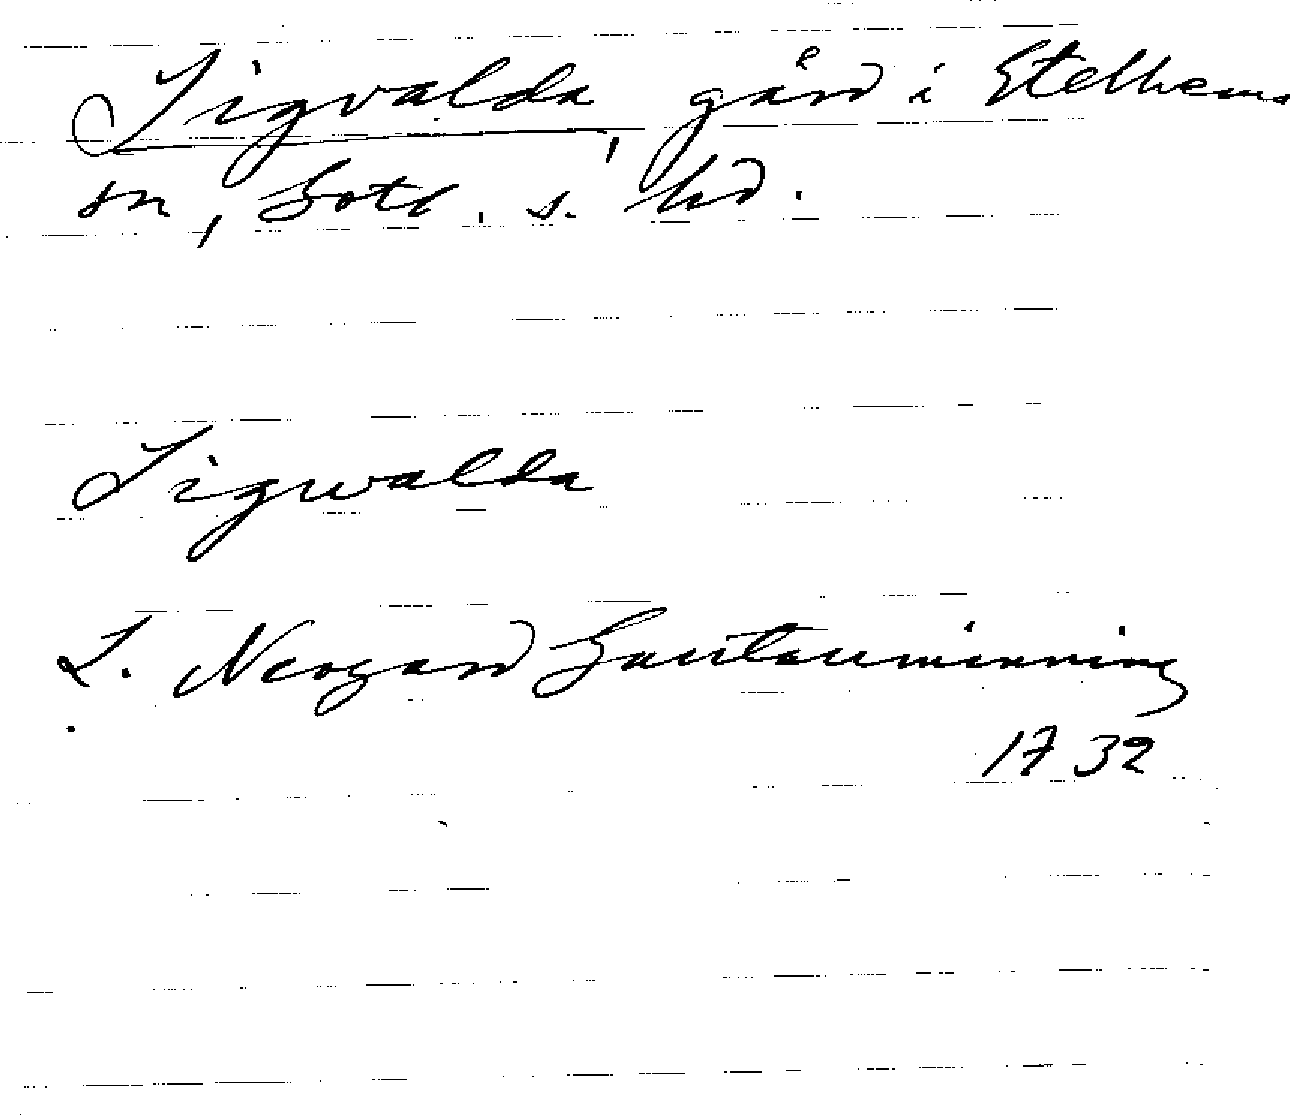 Sigvalda, gård i Etelhems
sn, Gotl. s. hd.
Sigwalda
L. Neogard Gautauminning
1732